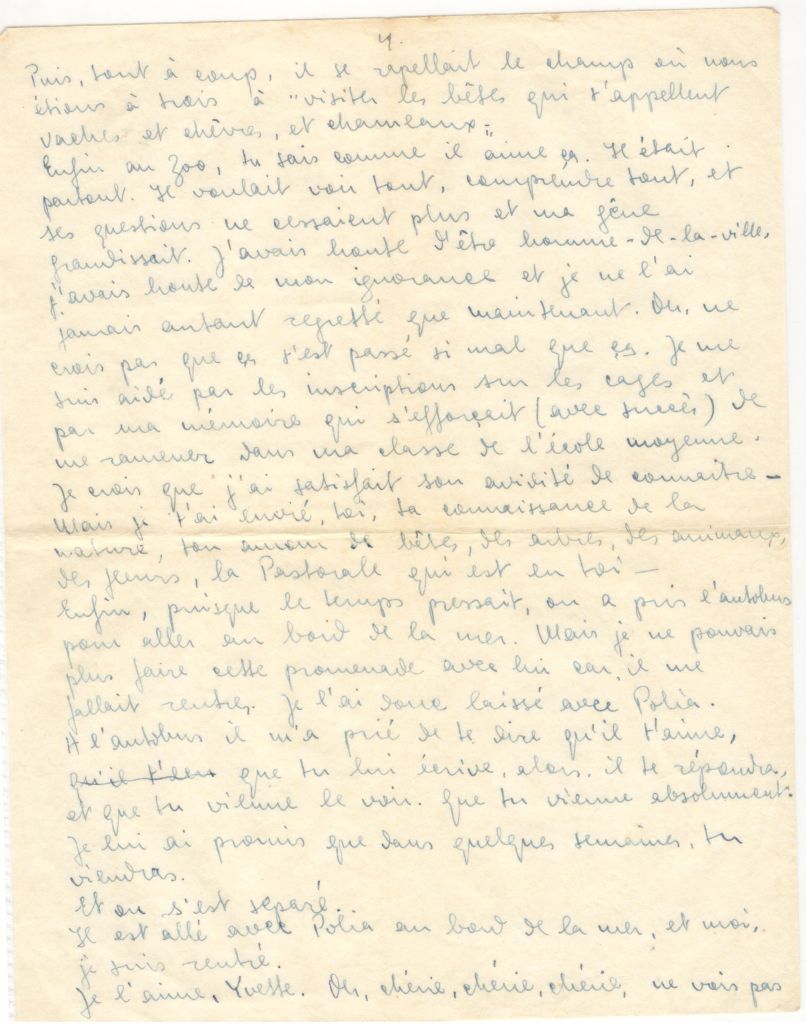 4.
Puis, tout à coup, il se rapellait le champ où nous
étions à trois à "visiter les bêtes qui s'appellent
vaches et chèvres, et chameaux."
Enfin au Zoo, tu sais comme il aime ça. Il était
partout. Il voulait voir tout, comprendre tout, et
ses questions ne cessaient plus et ma gêne
grandissait. J'avais honte d'être homme-de-la-ville,
j'avais honte de mon ignorance et je ne l'ai
jamais autant regretté que maintenant. Oh, ne
crois pas que ça s'est passé si mal que ça. Je me
suis aidé par les inscriptions sur les cages et
par ma mémoire qui s'efforçait (avec succès) de
me ramener dans ma classe de l'école moyenne.
Je crois que j'ai satisfait son avidité de connaitre –
Mais je t'ai envié, toi, ta connaissance de la
nature, ton amour de bêtes, des arbres, des animaux,
des fleurs, la Pastorale qui est en toi –
Enfin, puisque le temps pressait, on a pris l'autobus
pour aller au bord de la mer. Mais je ne pouvais
plus faire cette promenade avec lui car, il me
fallait rentrer. Je l'ai donc laissé avec Polia.
A l'autobus il m'a prié de te dire qu'il t'aime,
qu'il t'écr que tu lui écrive, alors, il te répondra,
et que tu vienne le voir. Que tu vienne absolument.
Je lui ai promis que dans quelques semaines, tu
viendras.
Et on s'est separé.
Il est allé avec Polia au bord de la mer, et moi,
je suis rentré.
Je l'aime, Yvette. Oh, chérie, chérie, chérie, ne vois pas